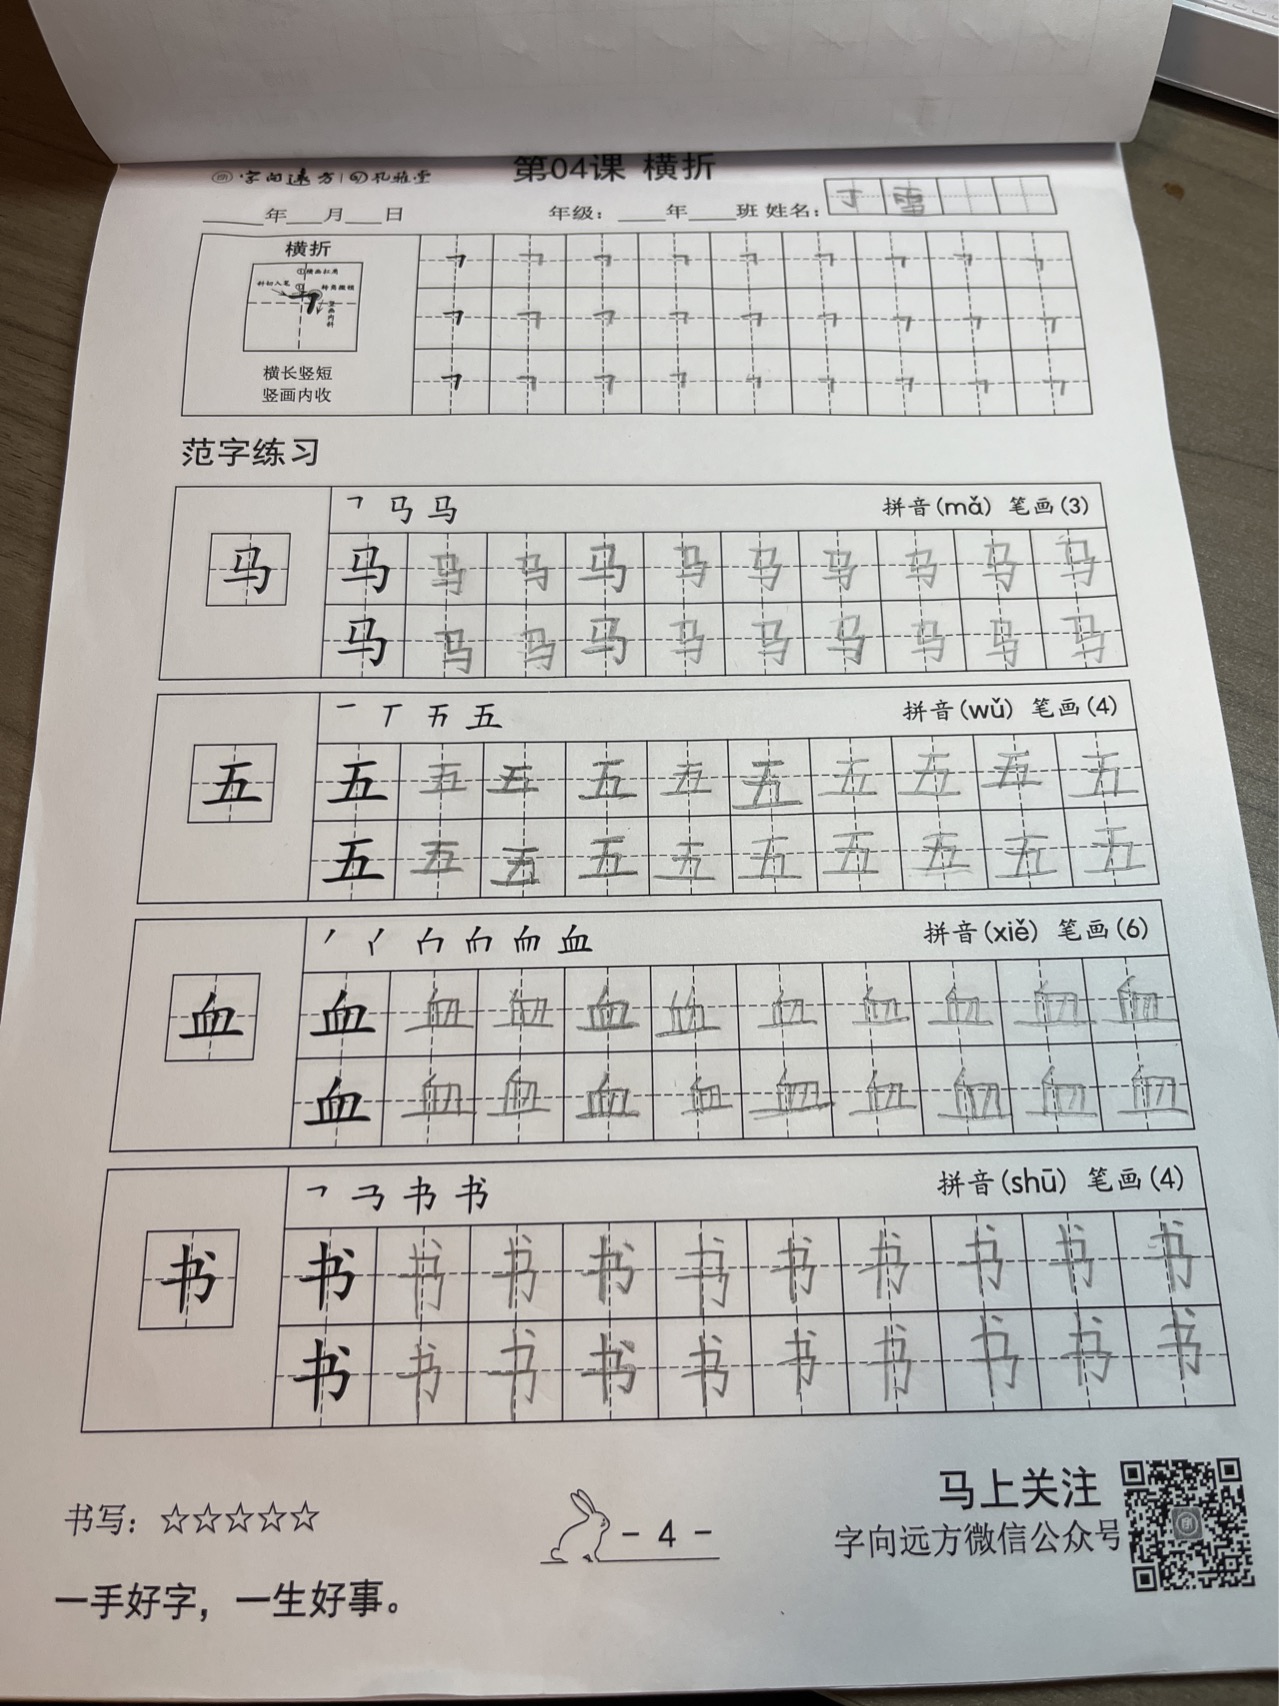 第04课 横折
字向远方 孔雅堂
____年___月___日 年级：____年____班 姓名：丁雷
横折
①横画扛肩
斜切入笔
转角微顿
竖画内斜
横长竖短
竖画内收
㇕ ㇕ ㇕ ㇕ ㇕ ㇕ ㇕ ㇕ ㇕
㇕ ㇕ ㇕ ㇕ ㇕ ㇕ ㇕ ㇕ ㇕
㇕ ㇕ ㇕ ㇕ ㇕ ㇕ ㇕ ㇕ ㇕
范字练习
㇕ 马 马 拼音(mǎ) 笔画(3)
马 马 马 马 马 马 马 马 马 马 马
马 马 马 马 马 马 马 马 马 马
一 丅 五 拼音(wǔ) 笔画(4)
五 五 五 五 五 五 五 五 五 五 五
五 五 五 五 五 五 五 五 五 五
丿 血 拼音(xiě) 笔画(6)
血 血 血 血 血 血 血 血 血 血 血
血 血 血 血 血 血 血 血 血 血
㇕ 书 书 拼音(shū) 笔画(4)
书 书 书 书 书 书 书 书 书 书 书
书 书 书 书 书 书 书 书 书 书
书写：☆☆☆☆☆
- 4 -
马上关注
字向远方微信公众号
一手好字，一生好事。